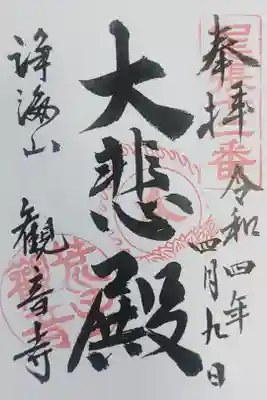 奉拝
令和四年
四月九日
大悲殿
浄海山
観音寺